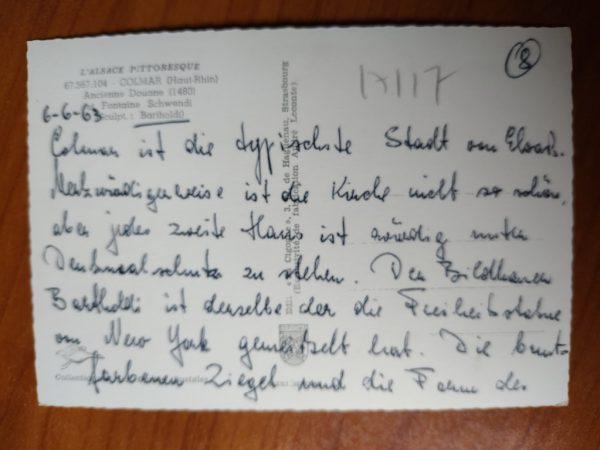 L'ALSACE PITTORESQUE
67.567.104 - COLMAR (Haut-Rhin)
Ancienne Douane (1480)
Fontaine Schwendi
Sculpt.: Bartholdi
8
17/17
6-6-63
Colmar ist die typischste Stadt vom Elsass.
Merkwürdigerweise ist die Kirche nicht so schön,
aber jedes zweite Haus ist würdig unter
Denkmalschutz zu stehen. Der Bildhauer
Bartholdi ist derselbe der die Freiheitsstatue
von New York gemeisselt hat. Die bunt-
farbenen Ziegel und die Form der
Edit. « La Cigogne », 3, de Haguenau, Strasbourg
de fabrication André Leconte)